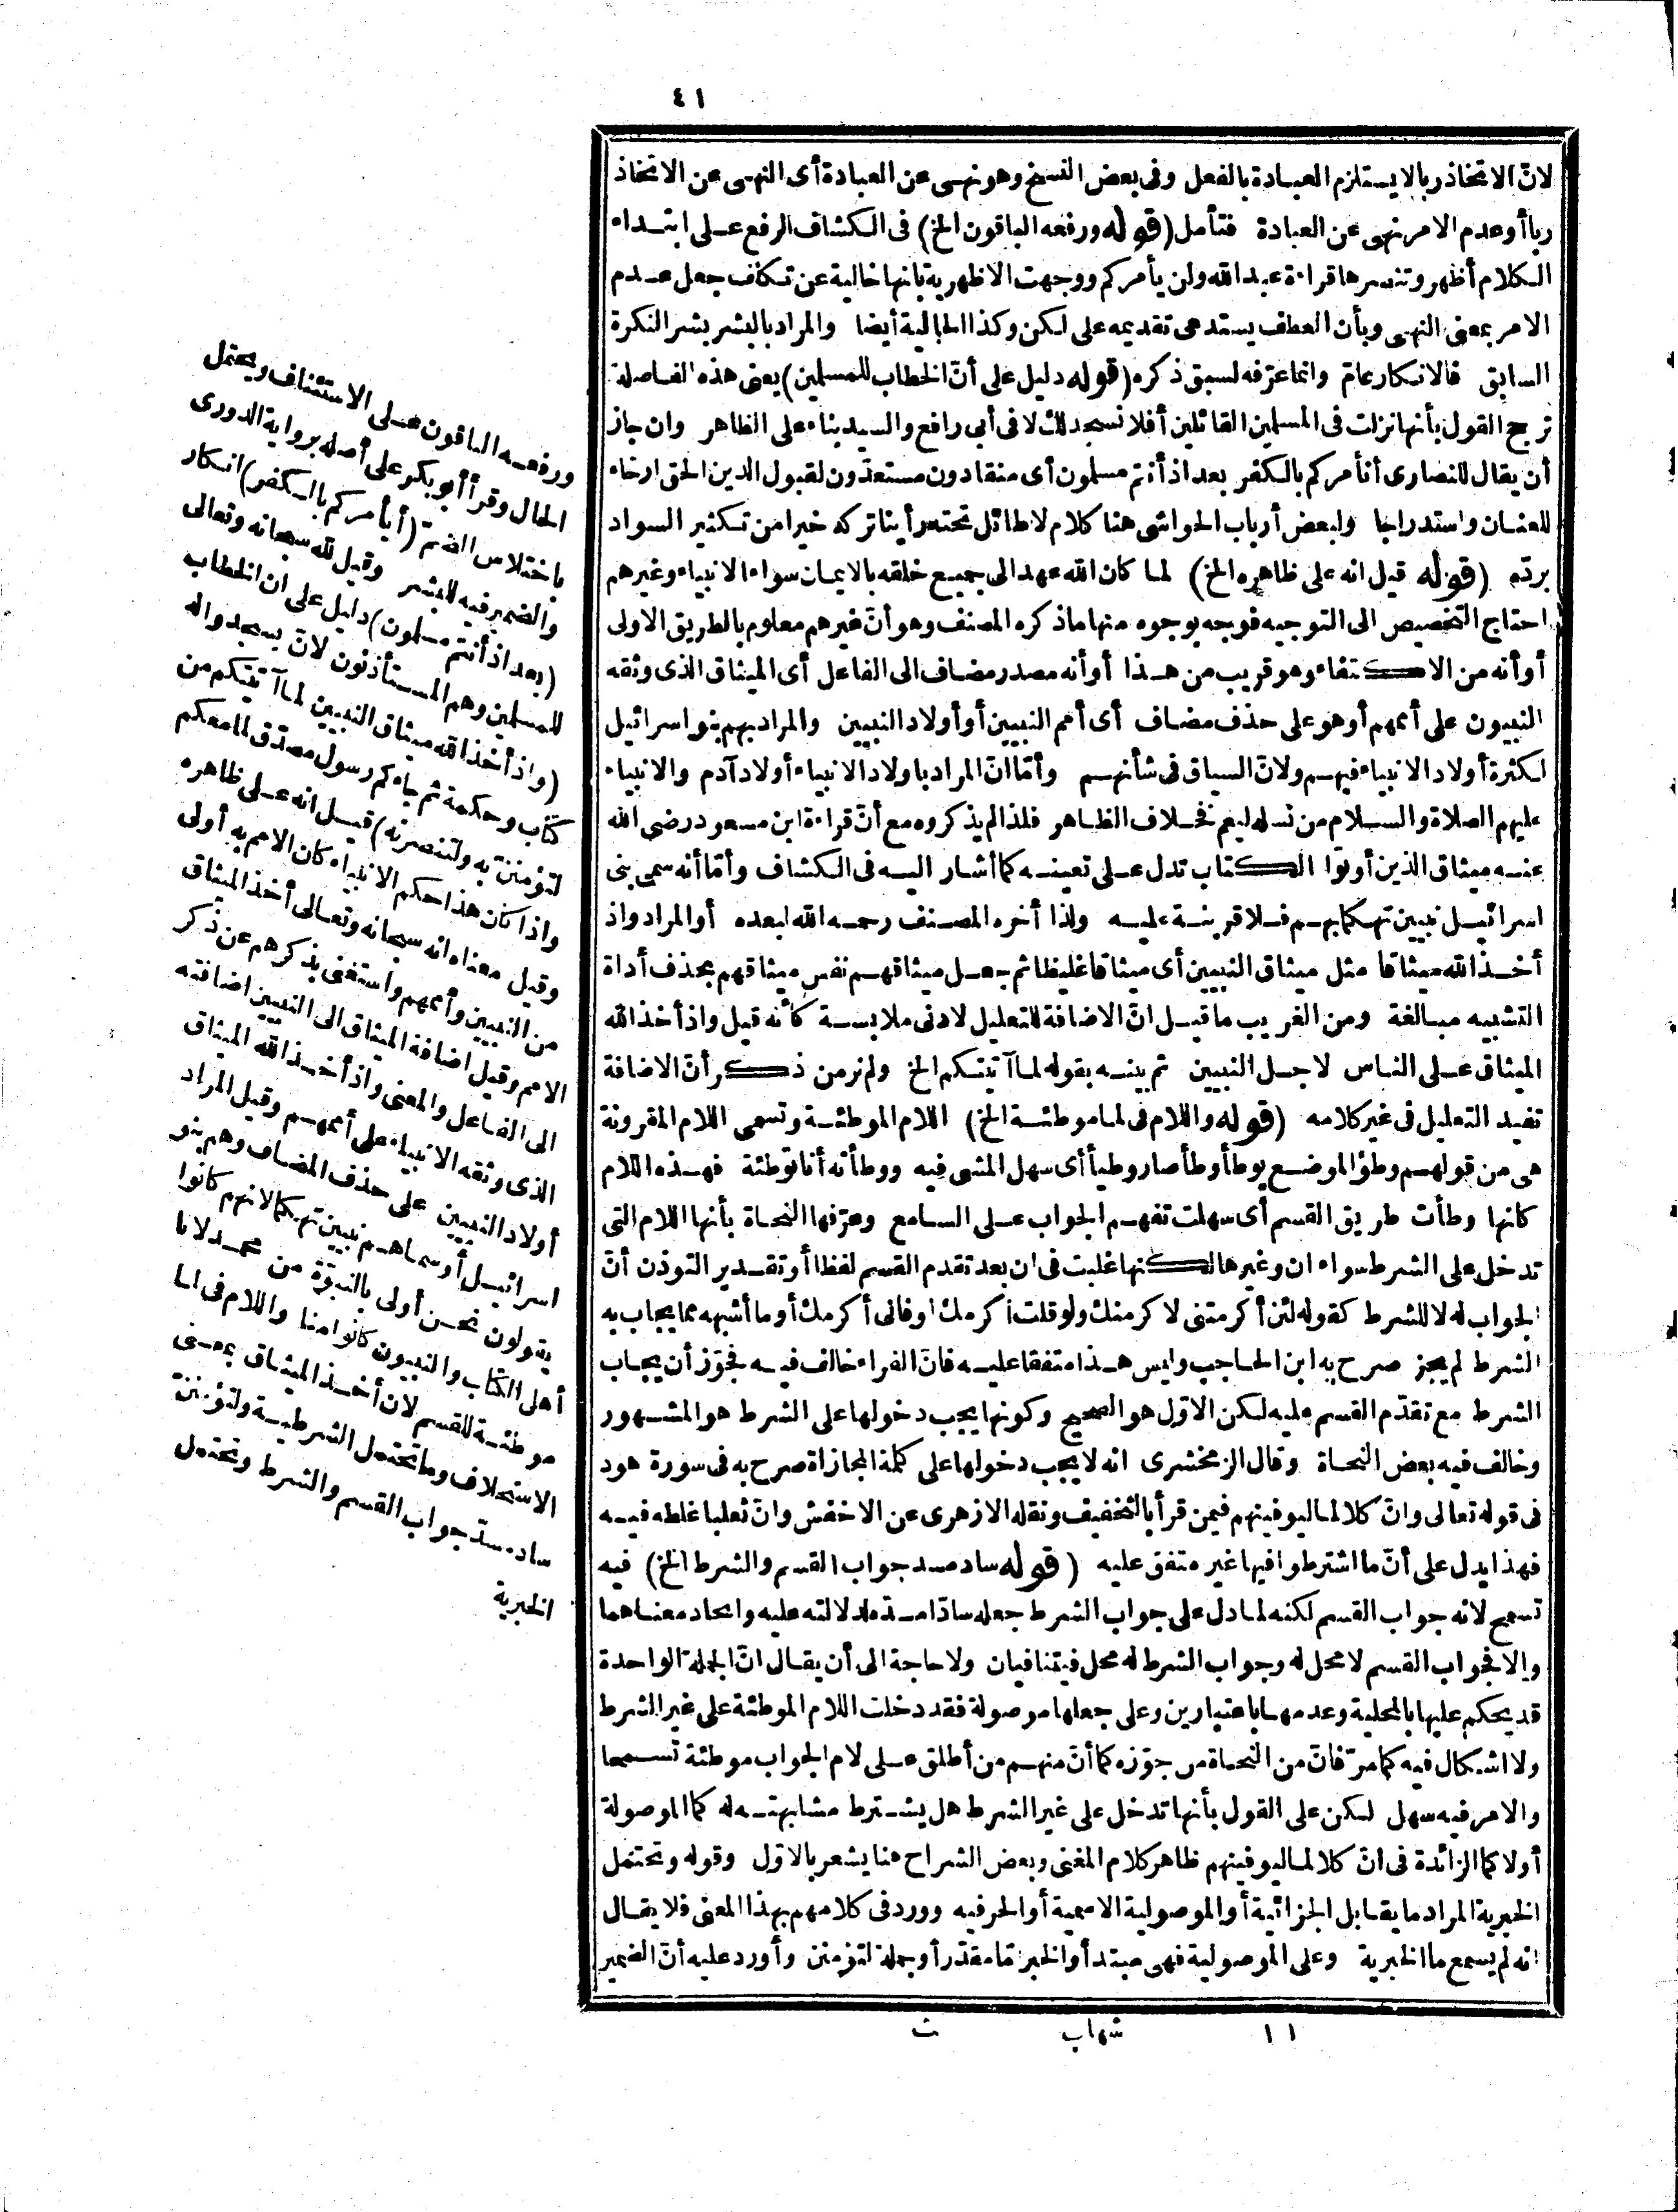 ٤١
لانّ الاتخاذ ربا لا يستلزم العبادة بالفعل وفى بعض النسخ وهو نهى عن العبادة أى النهى عن الاتخاذ
ربا أو عدم الامر نهى عن العبادة فتأمل (قوله ورفعه الباقون الخ) فى الكشاف الرفع على ابتداء
الكلام أظهر وتنصرها قراءة عبد الله ولن يأمركم ووجهت الاظهرية بانها خالية عن تكلف جعل عدم
الامر بمعنى النهى وبأن العطف يستدعى تقديمه على لكن وكذا الحالية أيضا والمراد بالبشر بشر النكرة
السابق فالانكار عامّ وانما عرّفه لسبق ذكره (قوله دليل على أنّ الخطاب للمسلمين) يعنى هذه الفاصلة
ترجح القول بأنها نزلت فى المسلمين القائلين أفلا نسجد لك لا فى أبى رافع والسيد بناء على الظاهر وان جاز
أن يقال للنصارى أنأمركم بالكفر بعد اذ أنتم مسلمون أى منقادون مستعدّون لقبول الدين الحق ارخاء
للعنان واستدراجا ولبعض أرباب الحواشى هنا كلام لا طائل تحته رأينا تركه خيرا من تكثير السواد
بردّه (قوله قيل انه على ظاهره الخ) لما كان الله عهد الى جميع خلقه بالايمان سواء الانبياء وغيرهم
احتاج التخصيص الى التوجيه فوجه بوجوه منها ماذكره المصنف وهو أنّ غيرهم معلوم بالطريق الاولى
أو أنه من الاكتفاء وهو قريب من هذا أو أنه مصدر مضاف الى الفاعل أى الميثاق الذى وثقه
النبيون على أممهم أو هو على حذف مضاف أى أمم النبيين أو أولاد النبيين والمراد بهم بنو اسرائيل
لكثرة أولاد الانبياء فيهم ولانّ السياق فى شأنهم وأمّا انّ المراد باولاد الانبياء أولاد آدم والانبياء
عليهم الصلاة والسلام من نسله ليعم فخلاف الظاهر فلذا لم يذكروه مع أنّ قراءة ابن مسعود رضى الله
عنه ميثاق الذين أوتوا الكتاب تدل على تعينه كما أشار اليه فى الكشاف وأمّا أنه سمى بنى
اسرائيل نبيين تهكما بهم فلا قرينة عليه ولذا أخره المصنف رحمه الله لبعده أو المراد واذ
أخذ الله ميثاقا مثل ميثاق النبيين أى ميثاقا غليظا ثم جعل ميثاقهم نفس ميثاقهم بحذف أداة
التشبيه مبالغة ومن الغريب ما قيل انّ الاضافة للتعليل لادنى ملابسة كأنه قيل واذ أخذ الله
الميثاق على الناس لاجل النبيين ثم بينه بقوله لما آتيتكم الخ ولم نر من ذكر أنّ الاضافة
تفيد التعليل فى غير كلامه (قوله واللام فى لما موطئة الخ) اللام الموطئة وتسمى اللام المقرونة
هى من قولهم وطؤ الموضع يوطأ وطأ صار وطيأ أى سهل المشى فيه ووطأته أنا توطئة فهذه اللام
كانها وطأت طريق القسم أى سهلت تفهم الجواب على السامع وعرّفها النحاة بأنها اللام التى
تدخل على الشرط سواء ان وغيرها لكنها غلبت فى ان بعد تقدم القسم لفظا أو تقدير التوذن أنّ
الجواب له لا للشرط كقوله لئن أكرمتنى لاكرمنك ولو قلت أكرمك أو فانى أكرمك أو ما أشبهه مما يجاب به
الشرط لم يجز صرح به ابن الحاجب وليس هذا متفقا عليه فانّ الفراء خالف فيه فجوّز أن يجاب
الشرط مع تقدّم القسم عليه لكن الاوّل هو الصحيح وكونها يجب دخولها على الشرط هو المشهور
وخالف فيه بعض النحاة وقال الزمخشرى انه لا يجب دخولها على كلمة المجازاة صرح به فى سورة هود
فى قوله تعالى وانّ كلا لما ليوفينهم فيمن قرأ بالتخفيف ونقله الازهرى عن الاخفش وانّ ثعلبا غلطه فيه
فهذا يدل على أنّ ما اشترطوا فيها غير متفق عليه (قوله ساد مسد جواب القسم والشرط الخ) فيه
تسمح لانه جواب القسم لكنه لما دل على جواب الشرط جعله سادّا مسدّه لدلالته عليه واتحاد معناهما
والا فجواب القسم لا محل له وجواب الشرط له محل فيتنافيان ولا حاجة الى أن يقال انّ الجملة الواحدة
قد يحكم عليها بالمحلية وعدمها باعتبارين وعلى جعلها موصولة فقد دخلت اللام الموطئة على غير الشرط
ولا اشكال فيه كما مرّ فانّ من النحاة من جوّزه كما أنّ منهم من أطلق على لام الجواب موطئة تسمحا
والامر فيه سهل لكن على القول بأنها تدخل على غير الشرط هل يشترط مشابهته له كما الموصولة
أو لا كما الزائدة فى انّ كلا لما ليوفينهم ظاهر كلام المغنى وبعض الشراح هنا يشعر بالاوّل وقوله وتحتمل
الخبرية المراد ما يقابل الجزائية أو الموصولية الاسمية أو الحرفيه وورد فى كلامهم بهذا المعنى فلا يقال
انه لم يسمع ما الخبرية وعلى الموصولية فهى مبتدأ والخبر امّا مقدّر أو جملة لتؤمنن وأورد عليه أنّ الضمير
١١ شهاب ث
ورفعه الباقون على الاستئناف ويحتمل
الحال وقرأ أبو بكر على أصله برواية الدورى
باختلاس الضمة (أيأمركم بالكفر) انكار
والضمير فيه للبشر وقيل لله سبحانه وتعالى
(بعد اذ أنتم مسلمون) دليل على ان الخطاب
للمسلمين وهم المستأذنون لان يسجدوا له
(واذ أخذ الله ميثاق النبيين لما آتيتكم من
كتاب وحكمة ثم جاءكم رسول مصدّق لما معكم
لتؤمننّ به ولتنصرنه) قيل انه على ظاهره
واذا كان هذا حكم الانبياء كان الامم به أولى
وقيل معناه انه سبحانه وتعالى أخذ الميثاق
من النبيين وأممهم واستغنى بذكرهم عن ذكر
الامم وقيل اضافة الميثاق الى النبيين اضافته
الى الفاعل والمعنى واذ أخذ الله الميثاق
الذى وثقه الانبياء على أممهم وقيل المراد
أولاد النبيين على حذف المضاف وهم بنو
اسرائيل أو سماهم نبيين تهكما لانهم كانوا
يقولون نحن أولى بالنبوّة من محمد لانا
أهل الكتاب والنبيون كانوا منا واللام فى لما
موطئة للقسم لان أخذ الميثاق بمعنى
الاستحلاف وما تحتمل الشرطية ولتؤمننّ
ساد مسدّ جواب القسم والشرط وتحتمل
الخبرية